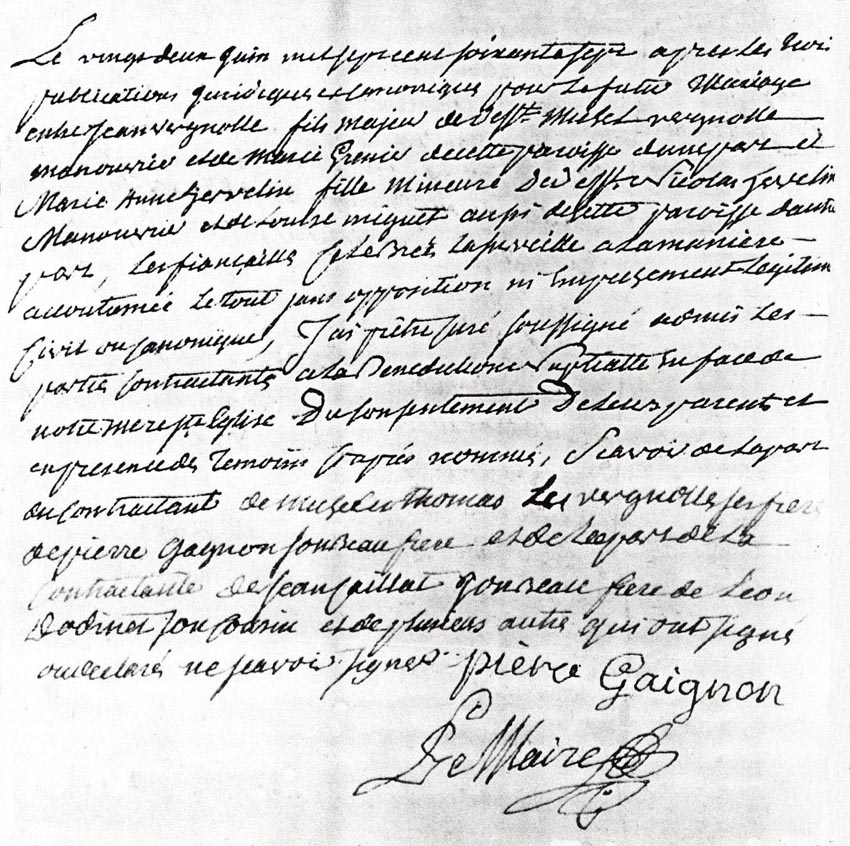 Le vingt deux juin mil sept cent soixante sept apres les trois
publications juridiques et canoniques pour le futur Mariage
entre Jean vergnolle fils majeur de defft. Michel vergnolle
manouvrie et de Marie Grenie de cette paroisse d'une part et
Marie Anne Gervelin fille Mineure De defft. Nicolas Gervelin
Manouvrie et de Louise miquet aussi de cette paroisse d'autre
part, les fiançailles celebrés la veille a la maniere
accoutumée le tout sans opposition ni Empechement Legitim
Civil ou Canonique, J'ai prêtre curé soussigné admis Les
partis Contractants a La Benediction Nuptialle En face de
notre mere ste Eglise Du Consentement De Leurs parents et
en presence des Temoins cy apres nommés, Scavoir de La part
du contractant de Michel et thomas Les vergnolles ses freres
de pierre Gagnon son Beau frere et de La part de La
Contractante de Jean Caillat son Beau frere de Leon
Dodinet son Cousin et de plusieurs autres qui ont signé
ou declaré ne scavoir signer. pièrre Gaignon
LeMaire